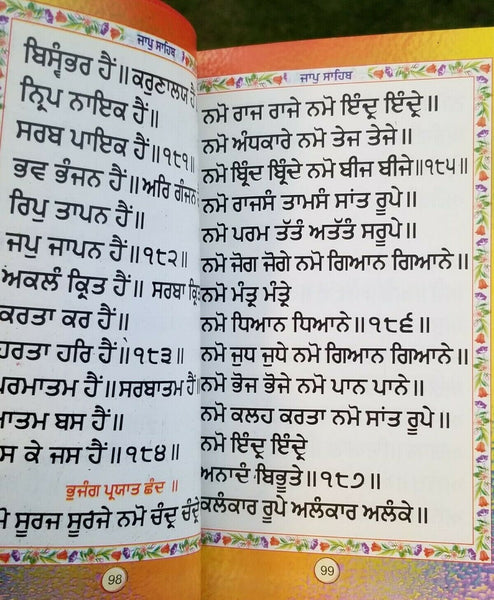 ਜਾਪੁ ਸਾਹਿਬ
ਬਿਸ੍ਵੰਭਰ ਹੈਂ॥ ਕਰੁਣਾਲਯ ਹੈਂ
ਨ੍ਰਿਪ ਨਾਇਕ ਹੈਂ॥
ਸਰਬ ਪਾਇਕ ਹੈਂ॥੧੮੧॥
ਭਵ ਭੰਜਨ ਹੈਂ॥ ਅਰਿ ਗੰਜਨ
ਰਿਪੁ ਤਾਪਨ ਹੈਂ॥
ਜਪੁ ਜਾਪਨ ਹੈਂ॥੧੮੨॥
ਅਕਲੰ ਕ੍ਰਿਤ ਹੈਂ॥ ਸਰਬਾ ਕ੍ਰਿ
ਕਰਤਾ ਕਰ ਹੈਂ॥
ਹਰਤਾ ਹਰਿ ਹੈਂ॥੧੮੩॥
ਪਰਮਾਤਮ ਹੈਂ॥ ਸਰਬਾਤਮ ਹੈਂ॥
ਆਤਮ ਬਸ ਹੈਂ॥
ਸ ਕੇ ਜਸ ਹੈਂ॥੧੮੪॥
ਭੁਜੰਗ ਪ੍ਰਯਾਤ ਛੰਦ ॥
ਮੋ ਸੂਰਜ ਸੂਰਜੇ ਨਮੋ ਚੰਦ੍ਰ ਚੰਦ੍ਰੇ
98
ਜਾਪੁ ਸਾਹਿਬ
ਨਮੋ ਰਾਜ ਰਾਜੇ ਨਮੋ ਇੰਦ੍ਰ ਇੰਦ੍ਰੇ॥
ਨਮੋ ਅੰਧਕਾਰੇ ਨਮੋ ਤੇਜ ਤੇਜੇ॥
ਨਮੋ ਬ੍ਰਿੰਦ ਬ੍ਰਿੰਦੇ ਨਮੋ ਬੀਜ ਬੀਜੇ॥੧੮੫॥
ਨਮੋ ਰਾਜਸੰ ਤਾਮਸੰ ਸਾਂਤ ਰੂਪੇ॥
ਨਮੋ ਪਰਮ ਤੱਤੰ ਅਤੱਤੰ ਸਰੂਪੇ॥
ਨਮੋ ਜੋਗ ਜੋਗੇ ਨਮੋ ਗਿਆਨ ਗਿਆਨੇ॥
ਨਮੋ ਮੰਤ੍ਰ ਮੰਤ੍ਰੇ
ਨਮੋ ਧਿਆਨ ਧਿਆਨੇ॥੧੮੬॥
ਨਮੋ ਜੁਧ ਜੁਧੇ ਨਮੋ ਗਿਆਨ ਗਿਆਨੇ॥
ਨਮੋ ਭੋਜ ਭੋਜੇ ਨਮੋ ਪਾਨ ਪਾਨੇ॥
ਨਮੋ ਕਲਹ ਕਰਤਾ ਨਮੋ ਸਾਂਤ ਰੂਪੇ॥
ਨਮੋ ਇੰਦ੍ਰ ਇੰਦ੍ਰੇ
ਅਨਾਦੰ ਬਿਭੂਤੇ॥੧੮੭॥
ਕਲੰਕਾਰ ਰੂਪੇ ਅਲੰਕਾਰ ਅਲੰਕੇ॥
99